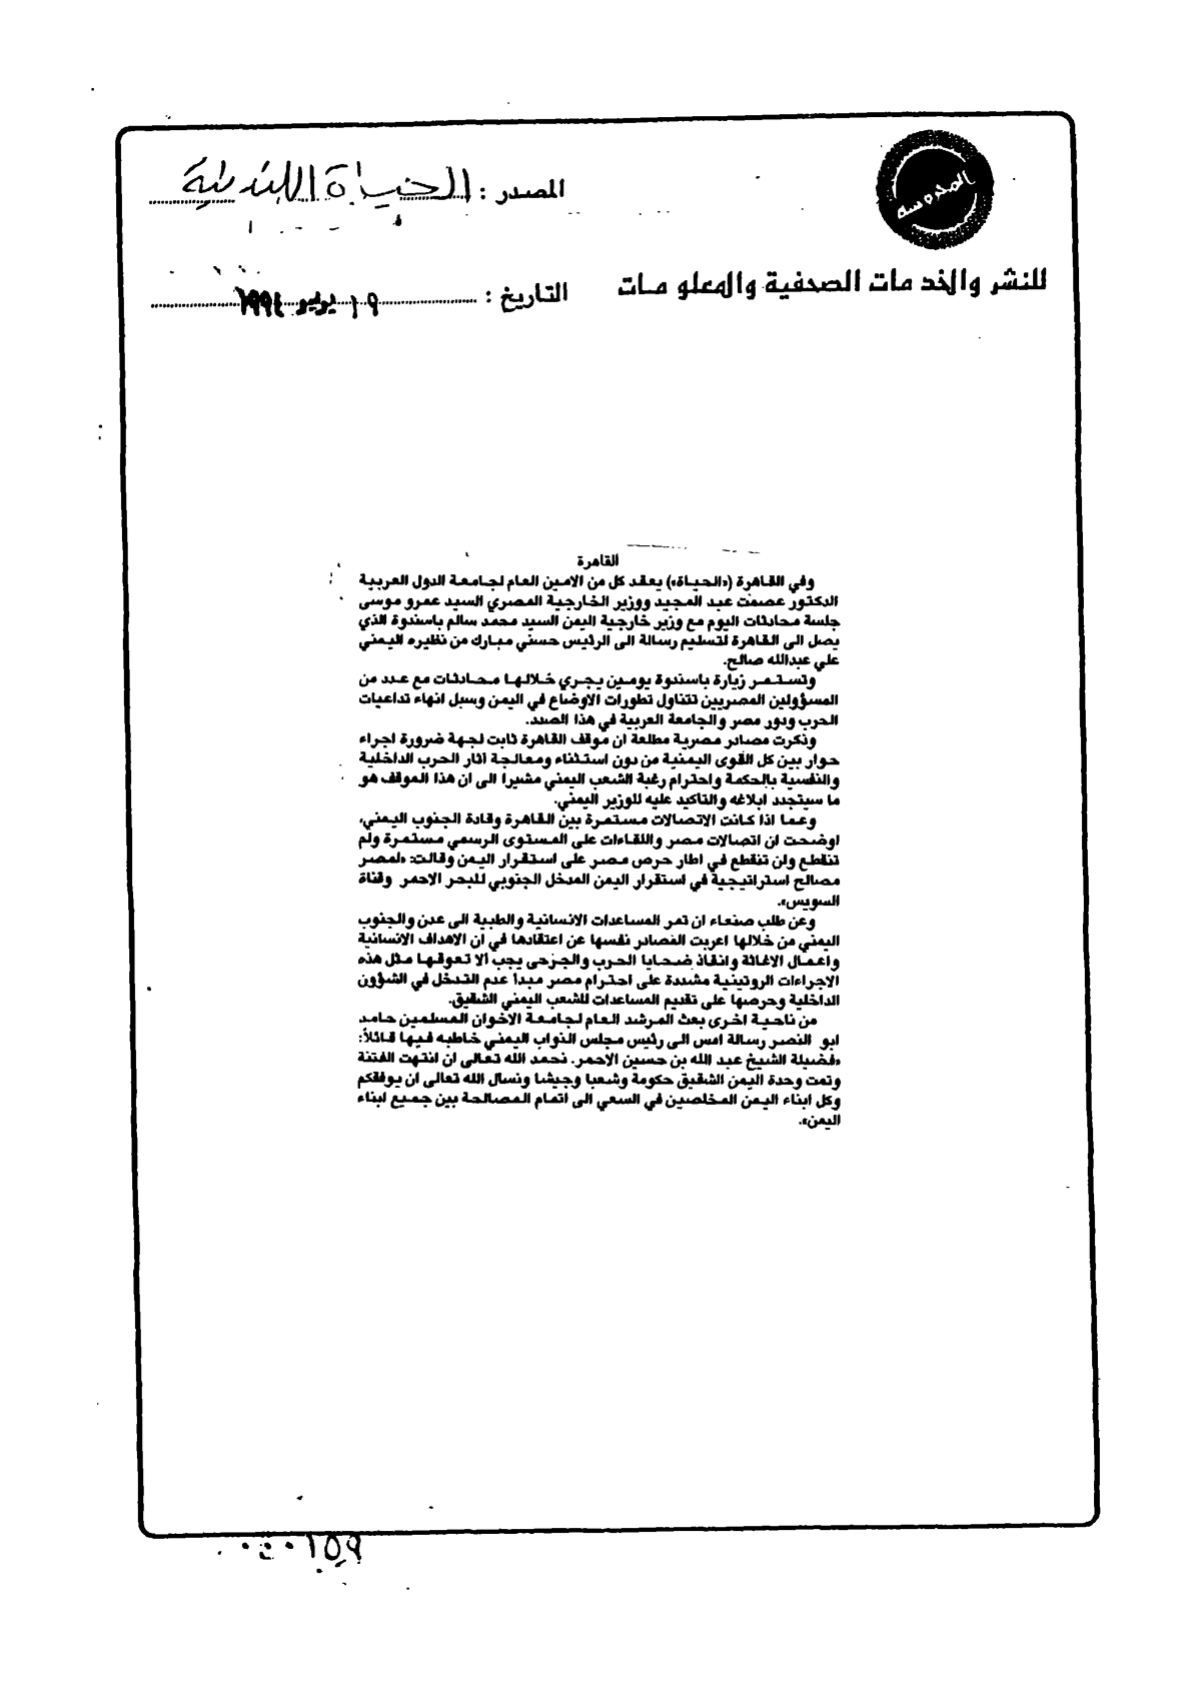 المحروسة
المصدر : الحياة اللندنية
للنشر والخدمات الصحفية والمعلومات
التاريخ : ١٩ يوليو ١٩٩٤
القاهرة
وفي القاهرة («الحياة») يعقد كل من الامين العام لجامعة الدول العربية
الدكتور عصمت عبد المجيد ووزير الخارجية المصري السيد عمرو موسى
جلسة محادثات اليوم مع وزير خارجية اليمن السيد محمد سالم باسندوة الذي
يصل الى القاهرة لتسليم رسالة الى الرئيس حسني مبارك من نظيره اليمني
علي عبدالله صالح.
وتستمر زيارة باسندوة يومين يجري خلالها محادثات مع عدد من
المسؤولين المصريين تتناول تطورات الاوضاع في اليمن وسبل انهاء تداعيات
الحرب ودور مصر والجامعة العربية في هذا الصدد.
وذكرت مصادر مصرية مطلعة ان موقف القاهرة ثابت لجهة ضرورة اجراء
حوار بين كل القوى اليمنية من دون استثناء ومعالجة اثار الحرب الداخلية
والنفسية بالحكمة واحترام رغبة الشعب اليمني مشيرا الى ان هذا الموقف هو
ما سيتجدد ابلاغه والتاكيد عليه للوزير اليمني.
وعما اذا كانت الاتصالات مستمرة بين القاهرة وقادة الجنوب اليمني،
اوضحت ان اتصالات مصر واللقاءات على المستوى الرسمي مستمرة ولم
تنقطع ولن تنقطع في اطار حرص مصر على استقرار اليمن وقالت: «لمصر
مصالح استراتيجية في استقرار اليمن المدخل الجنوبي للبحر الاحمر وقناة
السويس».
وعن طلب صنعاء ان تمر المساعدات الانسانية والطبية الى عدن والجنوب
اليمني من خلالها اعربت المصادر نفسها عن اعتقادها في ان الاهداف الانسانية
واعمال الاغاثة وانقاذ ضحايا الحرب والجرحى يجب الا تعوقها مثل هذه
الاجراءات الروتينية مشددة على احترام مصر مبدأ عدم التدخل في الشؤون
الداخلية وحرصها على تقديم المساعدات للشعب اليمني الشقيق.
من ناحية اخرى بعث المرشد العام لجامعة الاخوان المسلمين حامد
ابو النصر رسالة امس الى رئيس مجلس النواب اليمني خاطبه فيها قائلاً:
«فضيلة الشيخ عبد الله بن حسين الاحمر. نحمد الله تعالى ان انتهت الفتنة
وتمت وحدة اليمن الشقيق حكومة وشعبا وجيشا ونسال الله تعالى ان يوفقكم
وكل ابناء اليمن المخلصين في السعي الى اتمام المصالحة بين جميع ابناء
اليمن».